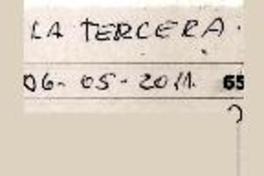 LA TERCERA.
06-05-2011. 65